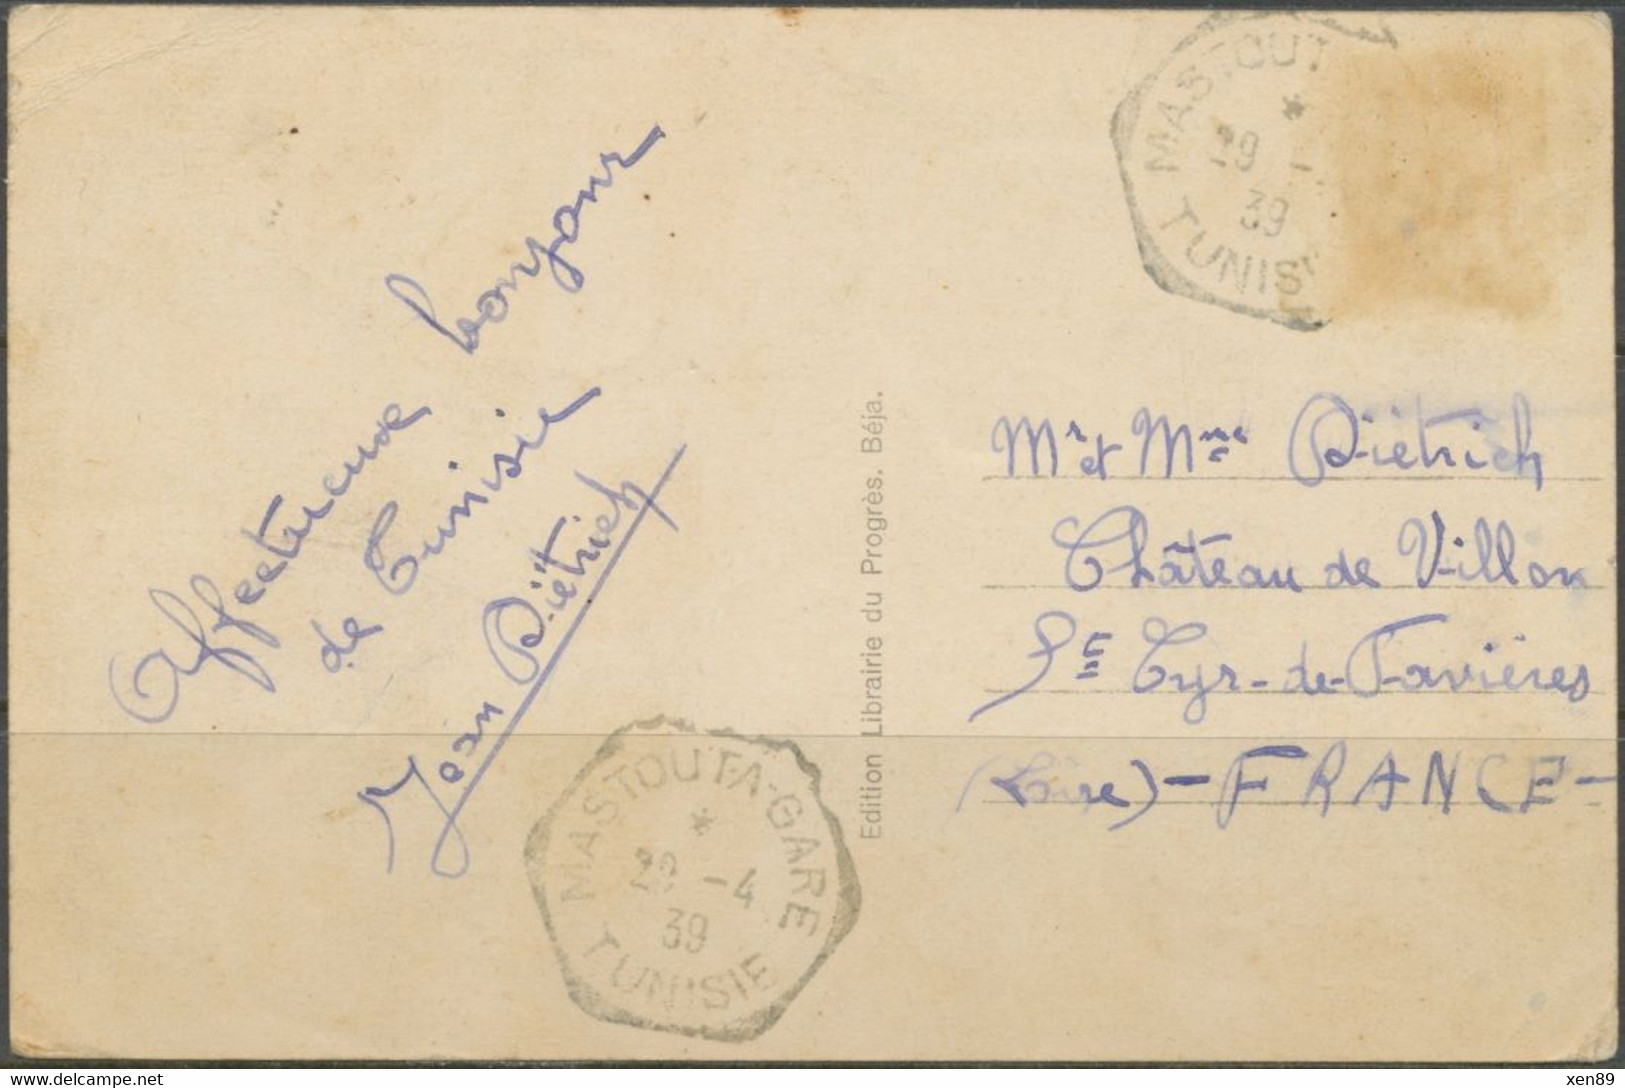 Affectueux bonjour
de Tunisie
Jean Diëtrich
MASTOUTA-GARE
*
29 -4
39
TUNISIE
Edition Librairie du Progrès. Béja.
MASTOUT
*
29 -
39
TUNISI
Mr et Mme Diëtrich
Château de Villon
St Cyr-de-Favières
(Loire) - FRANCE -
xen89